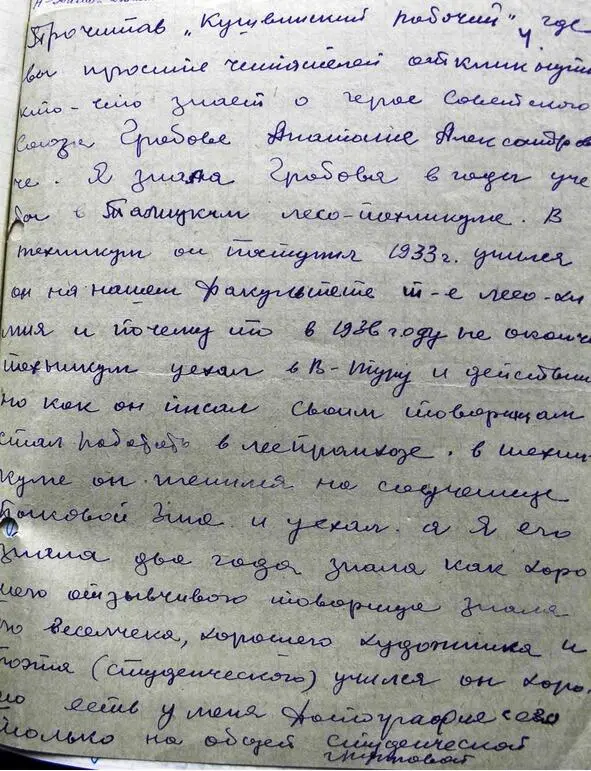 Прочитав „Кушвинский рабочий", где
вы просите читателей откликнутся
кто-что знает о герое Советского
Союза Грабове Анатолие Александрови
че. Я знала Грабова в годы уче
бы в Талицким лесо-техникуме. В
техникум он поступил 1933г. учился
он на нашем факультете т-е лесо-хи
мия и почему то в 1936 году не оконч
техникум уехал в В-Туру и действи
но как он писал своим товарищам
стал работать в леспромхозе. в техни
куме он женился на сокурснице
Зине. и уехал. а Я его
знала два года знала как хоро
шего отзывчивого товарища знала
го веселчека, хорошего художника и
поэта (студенческого) учился он хоро
шо есть у меня фотография его
только на общей студенческой
групповой